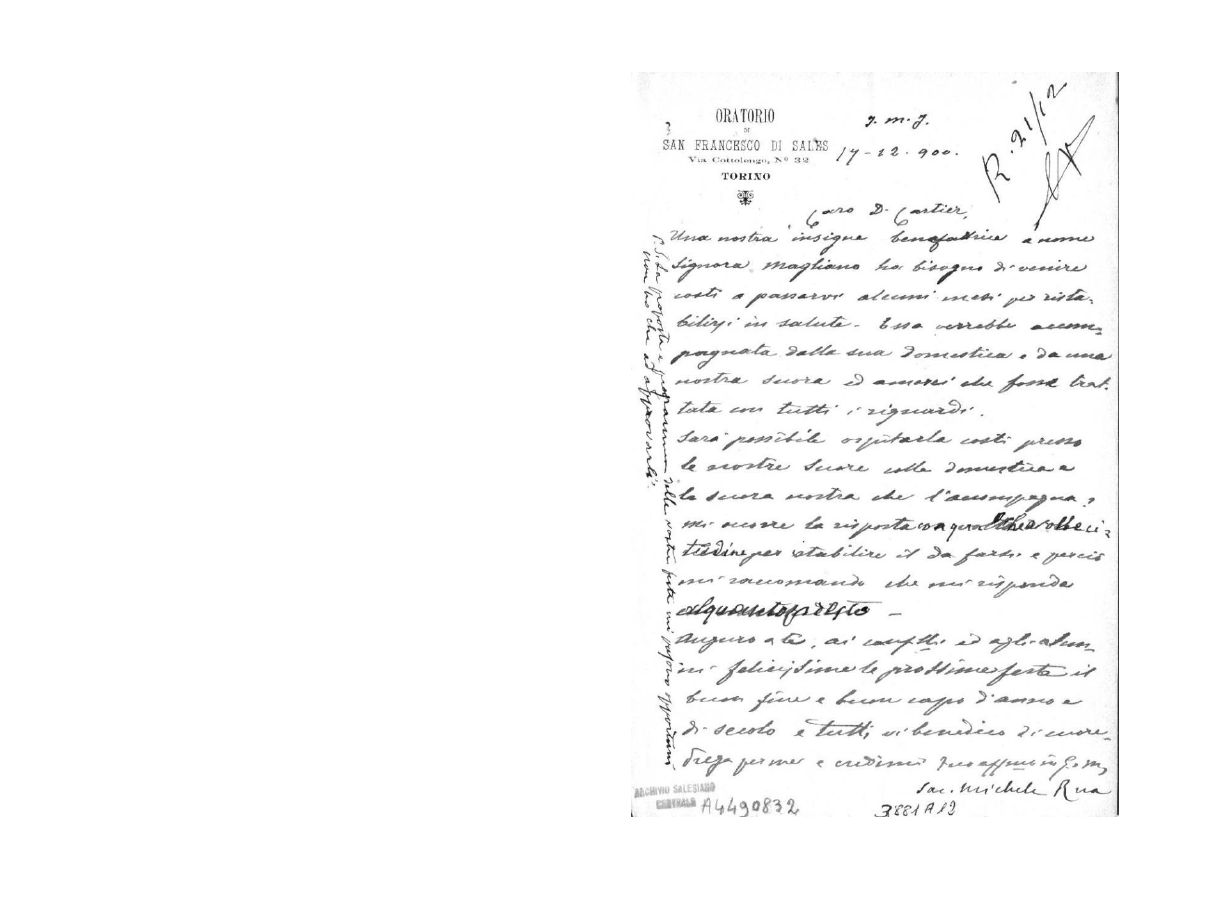 ORATORIO
DI
SAN FRANCESCO DI SALES
Via Cottolengo, Nº 32
TORINO
J. M. J.
17-12-900.
R. 21/12
Caro D. Cartier,
Una nostra insigne benefattrice a nome
Signora Magliano ha bisogno di venire
costì a passarvi alcuni mesi per rista-
bilirsi in salute. Essa verrebbe accom-
pagnata dalla sua domestica e da una
nostra suora ed amerei che fosse trat-
tata con tutti i riguardi.
Sarà possibile ospitarla costì presso
le nostre Suore colla domestica e
la suora nostra che l'accompagna?
Mi occorre la risposta con qualche solleci-
tudine per stabilire il da farsi e perciò
mi raccomando che mi risponda
alquanto presto -
Auguro a te, ai conflli ed agli alun-
ni felicissime le prossime feste il
buon fine e buon capo d'anno e
di secolo e tutti vi benedico di cuore.
Prega per me e credimi tuo affmo in G. e M.
Sac. Michele Rua
P. S. La proposta e programma delle vostre feste mi paiono opportuni
non ho che ad approvarli.
ARCHIVIO SALESIANO
CENTRALE
A4490832
3881A12